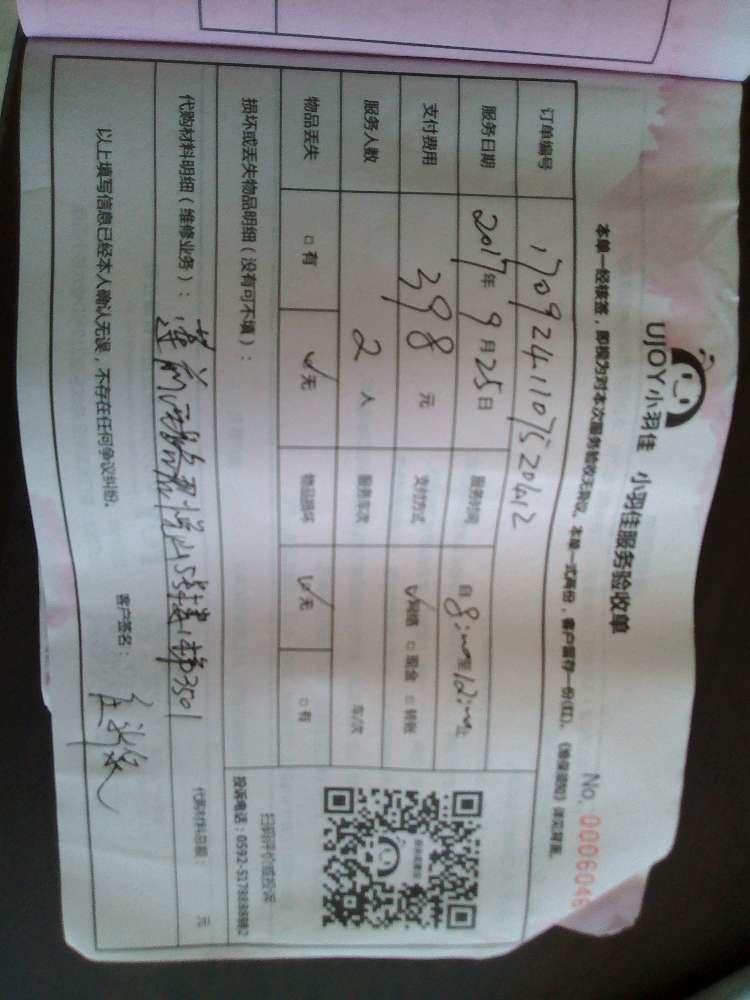 UJOY小羽佳 小羽佳服务验收单
No. 0006046
本单一经核签，即视为对本次服务验收无异议。本单一式两份，客户留存一份(红)。《维保须知》详见背面。
订单编号 170924110752042
服务日期 2017年9月25日 服务时间 自8:00至12:00止
支付费用 398元 支付方式 ✓网络 □现金 □转账
服务人数 2人 服务车次 车/次
物品丢失 □有 ✓无 物品损坏 ✓无 □有
损坏或丢失物品明细（没有可不填）：
扫码评价或投诉
投诉电话：0592-5178888转2
代购材料明细（维修业务）： 莲前 3501
代购材料总额： 元
以上填写信息已经本人确认无误，不存在任何争议纠纷。
客户签名：